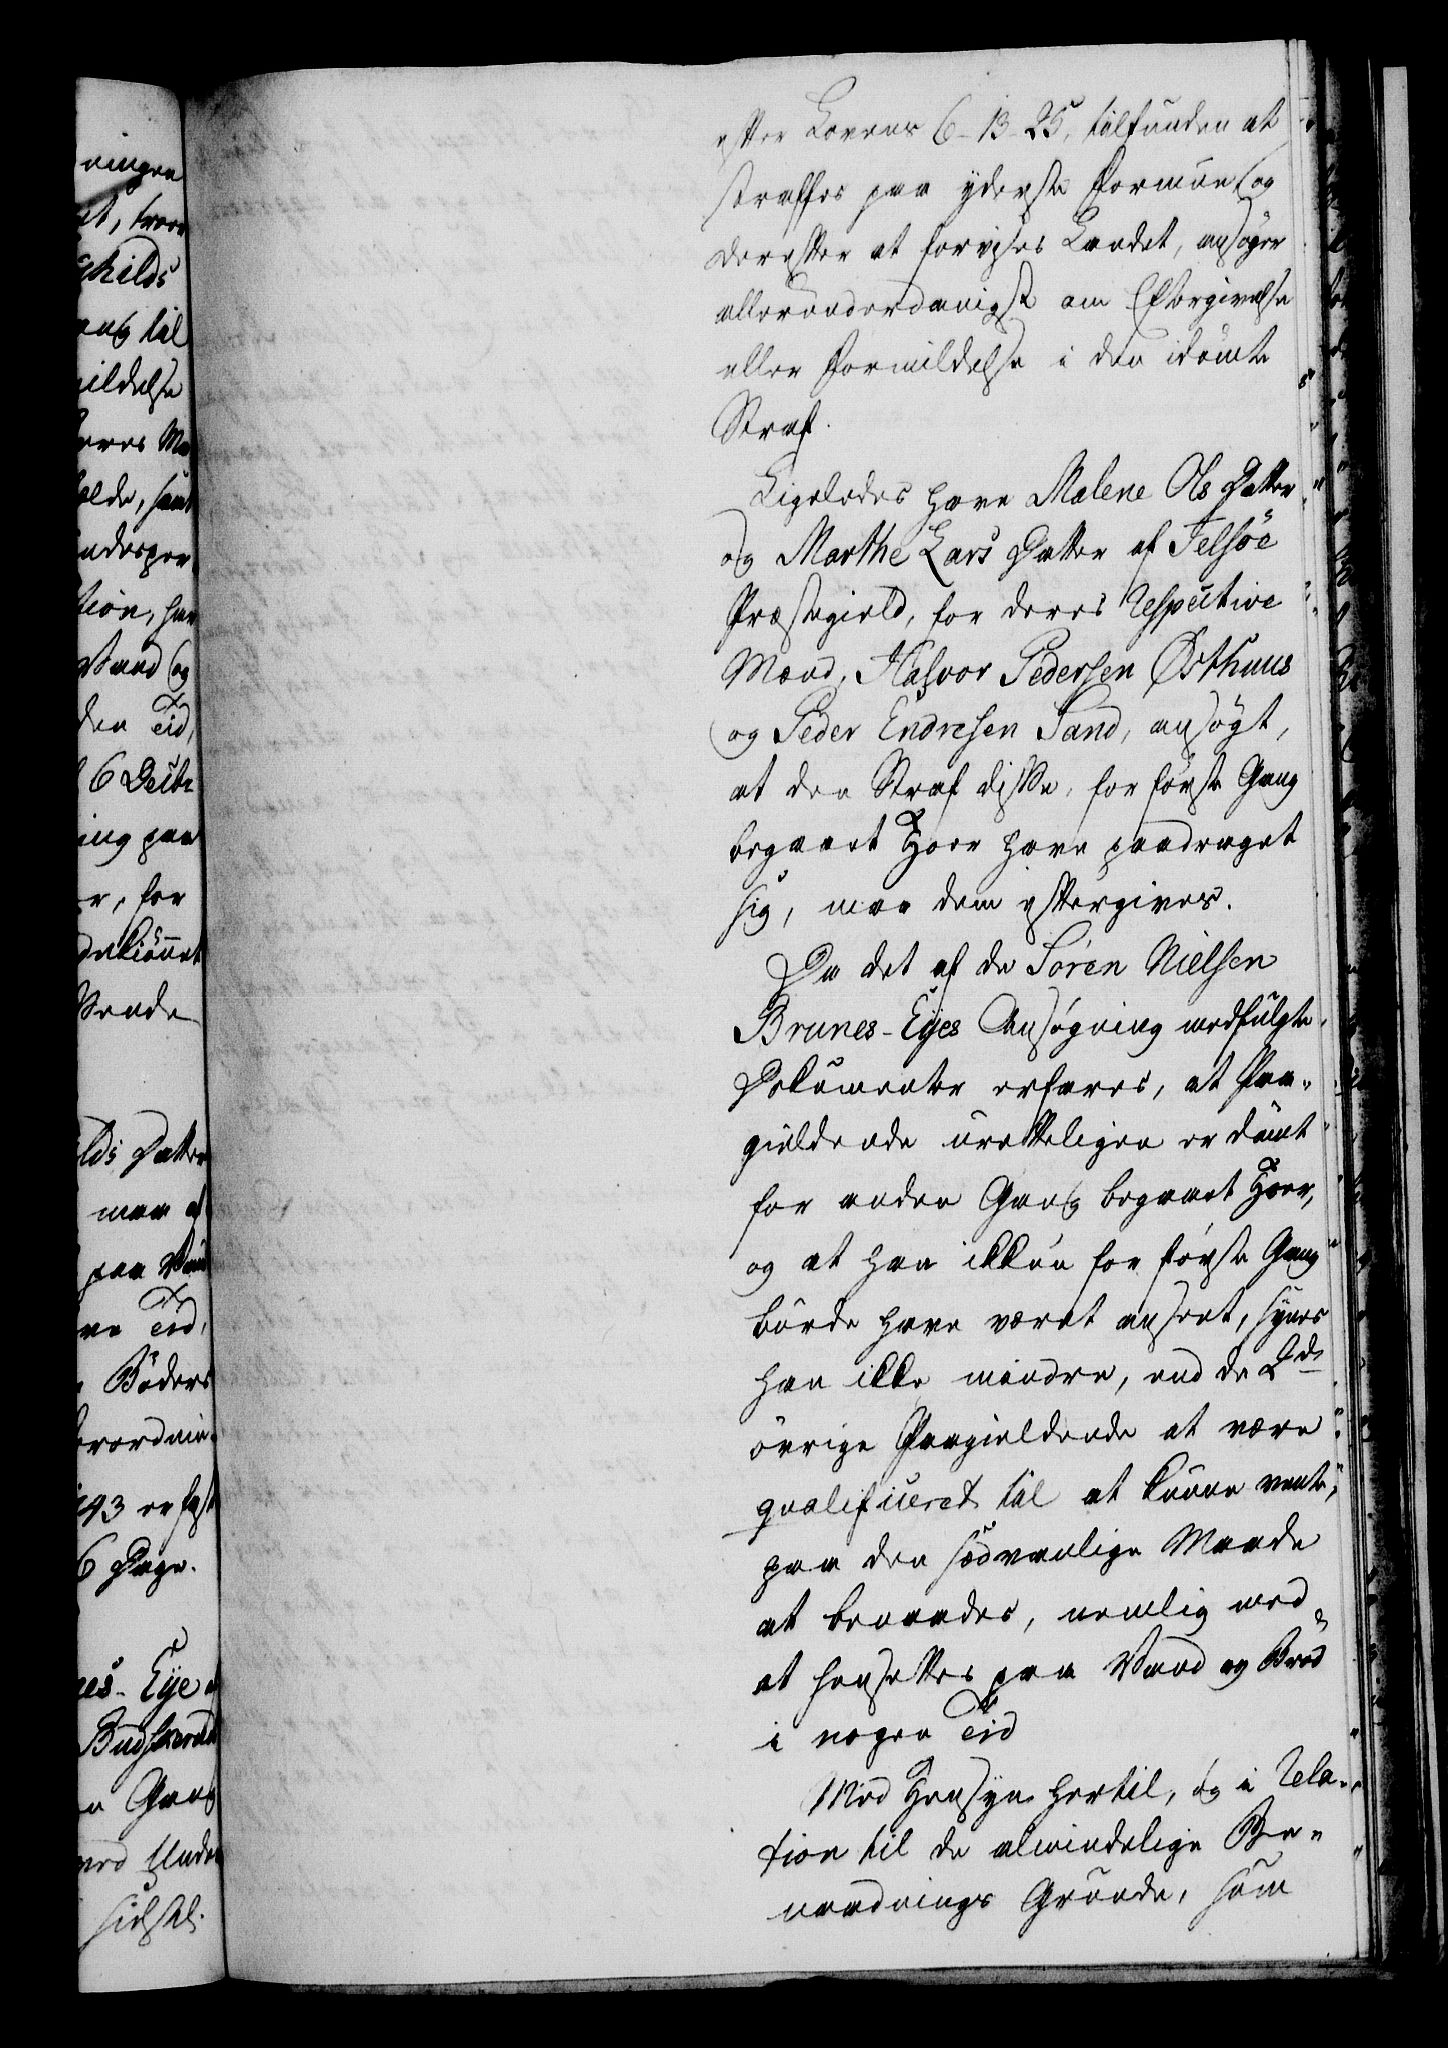 efter Lovens 6-13-25, tilfunden at
straffes paa yderste Formue og
derefter at forvises Landet, ansøger
allerunderdanigst om Eftergivelse
eller Formildelse i den idømte
Straf.
Ligeledes have Malene Ols Datter
og Marthe Lars Datter af Jelsøe
Præstegield, for deres respective
Mænd, Halvor Pedersen Østhuus
og Peder Endresen Sand, ansøgt,
at den Straf disse, for første Gang
begaaet Hoer have paadraget
sig, maa dem eftergives.
Da det af de Sören Nielsen
Brunes-Eyes Ansøgning medfulgte
Dokumenter erfares, at Paa-
gieldende uretteligen er dømt
for anden Gang begaaet Hoer,
og at han ikkun for første Gang
burde have været anseet, synes
han ikke mindre, end de 2de
øvrige Paagieldende at være
qvalificeret til at kunne vente,
paa den sædvanlige Maade
at benaades, nemlig med
at hensettes paa Vand og Brød
i nogen Tid
Med Hensyn hertil, og i Rela-
tion til de almindelige Be-
naadnings Grunde, som
ningen
ildelse
til
den Tid,
6 Octbr
ing paa
r, for
lds Datter
maa af
ve Tid,
Bøder
93 er fast
6 Dage.
nes-Eye
Budskerud
n Gang